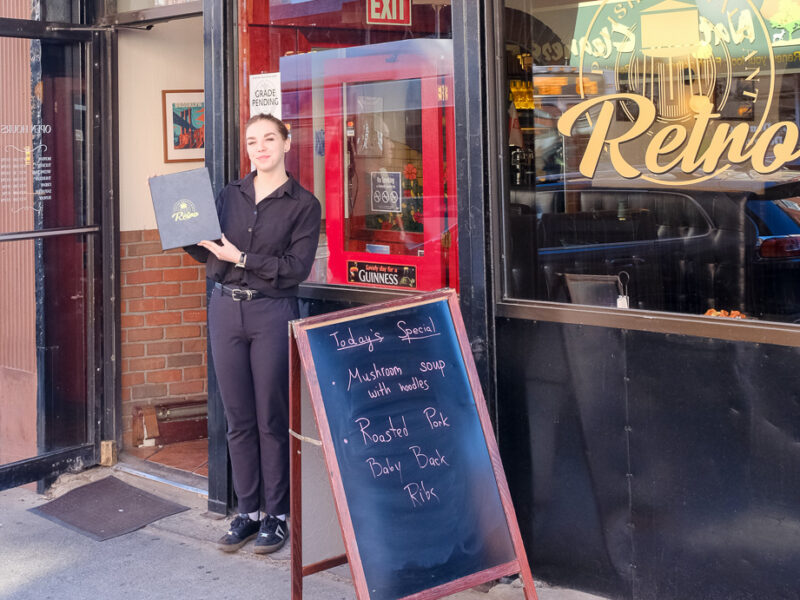 EXIT
GRADE
PENDING
OPEN HOURS
Retro
Retro
Lovely day for a
GUINNESS
Today's Special
Mushroom soup
with noodles
Roasted Pork
Baby Back
Ribs